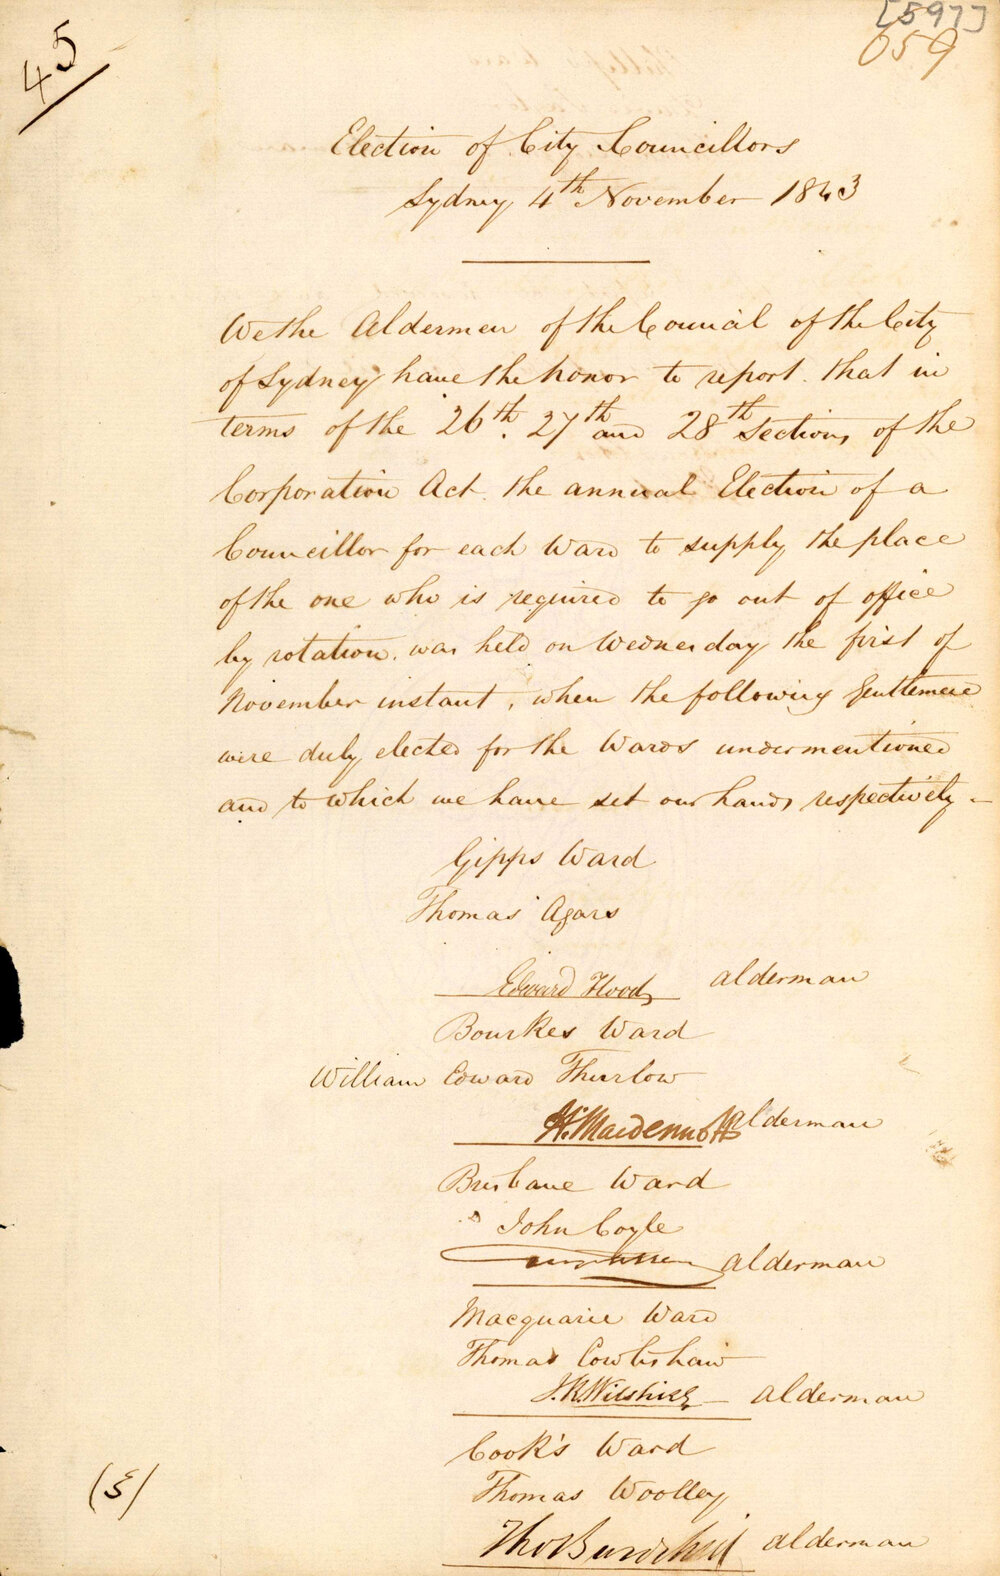 [597]
059
45
Election of City Councillors
Sydney 4th November 1843
We the Aldermen of the Council of the City
of Sydney have the honor to report that in
terms of the 26th. 27th and 28th Sections of the
Corporation Act. the annual Election of a
Councillor for each Ward to supply the place
of the one who is required to go out of office
by rotation. was held on Wednesday the first of
November instant, when the following Gentlemen
were duly elected for the Wards undermentioned
and to which we have set our hands respectively -
Gipps Ward
Thomas Agars
Edward Flood alderman
Bourkes Ward
William Edward Thurlow
H. Macdermott alderman
Brisbane Ward
John Coyle
alderman
Macquarie Ward
Thomas Cowlishaw
J.R. Wilshire alderman
Cook's Ward
Thomas Woolley
Thos Burdekin alderman